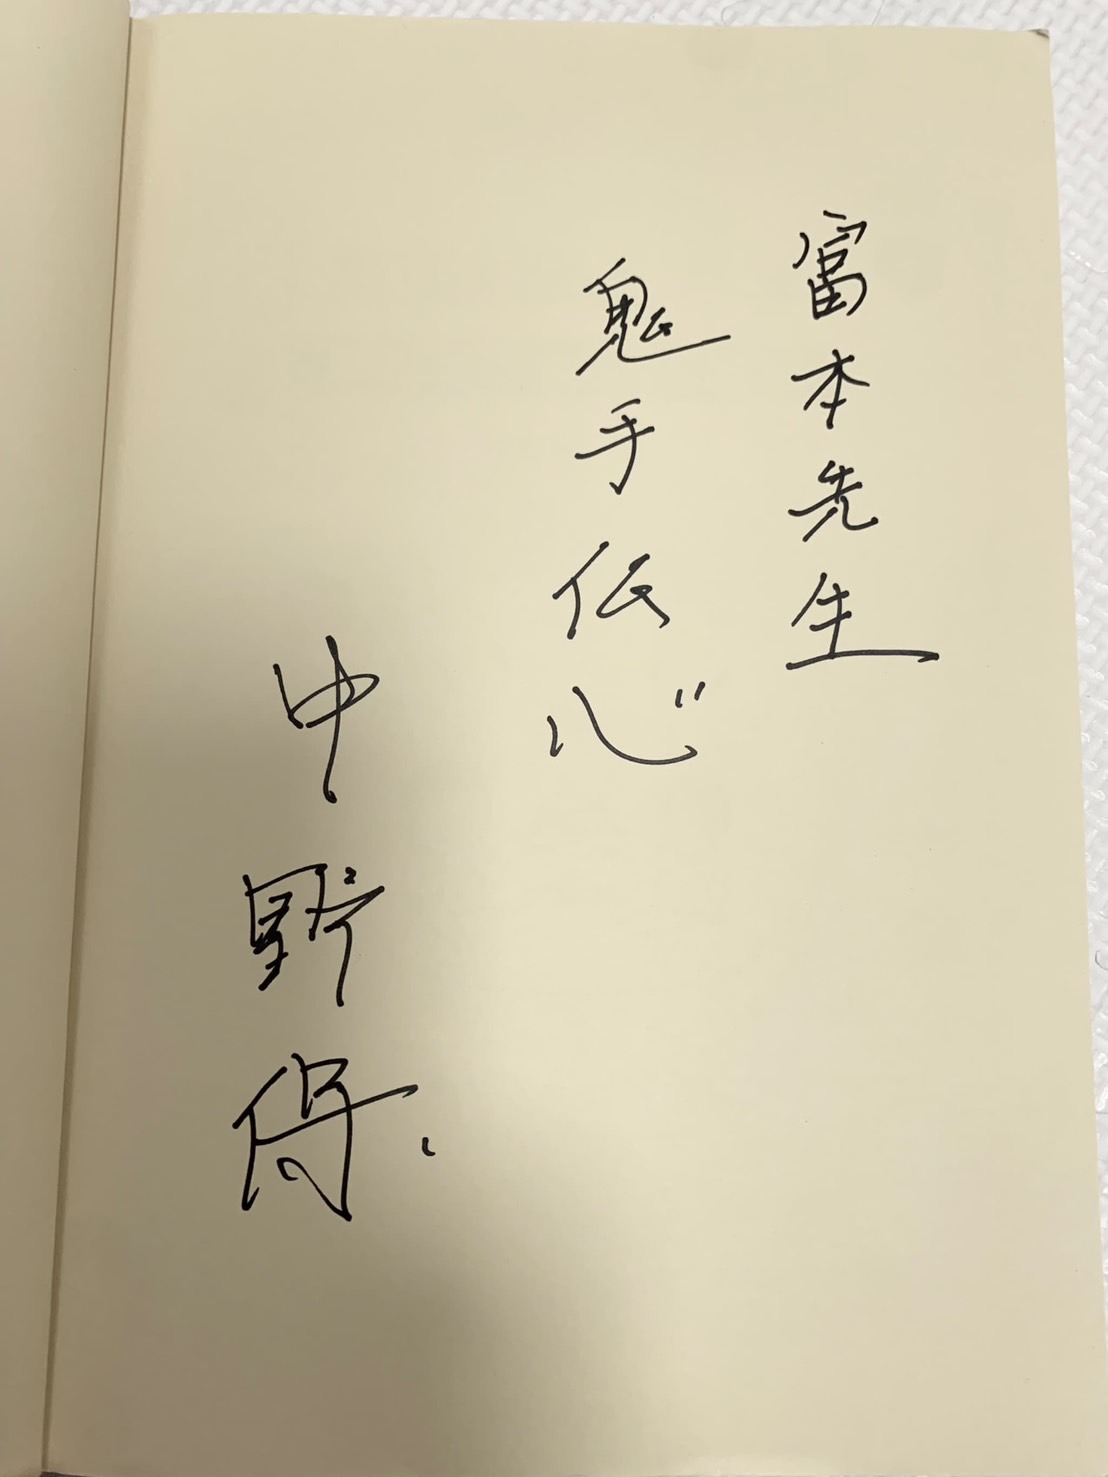 富本先生
鬼手仏心
中野得